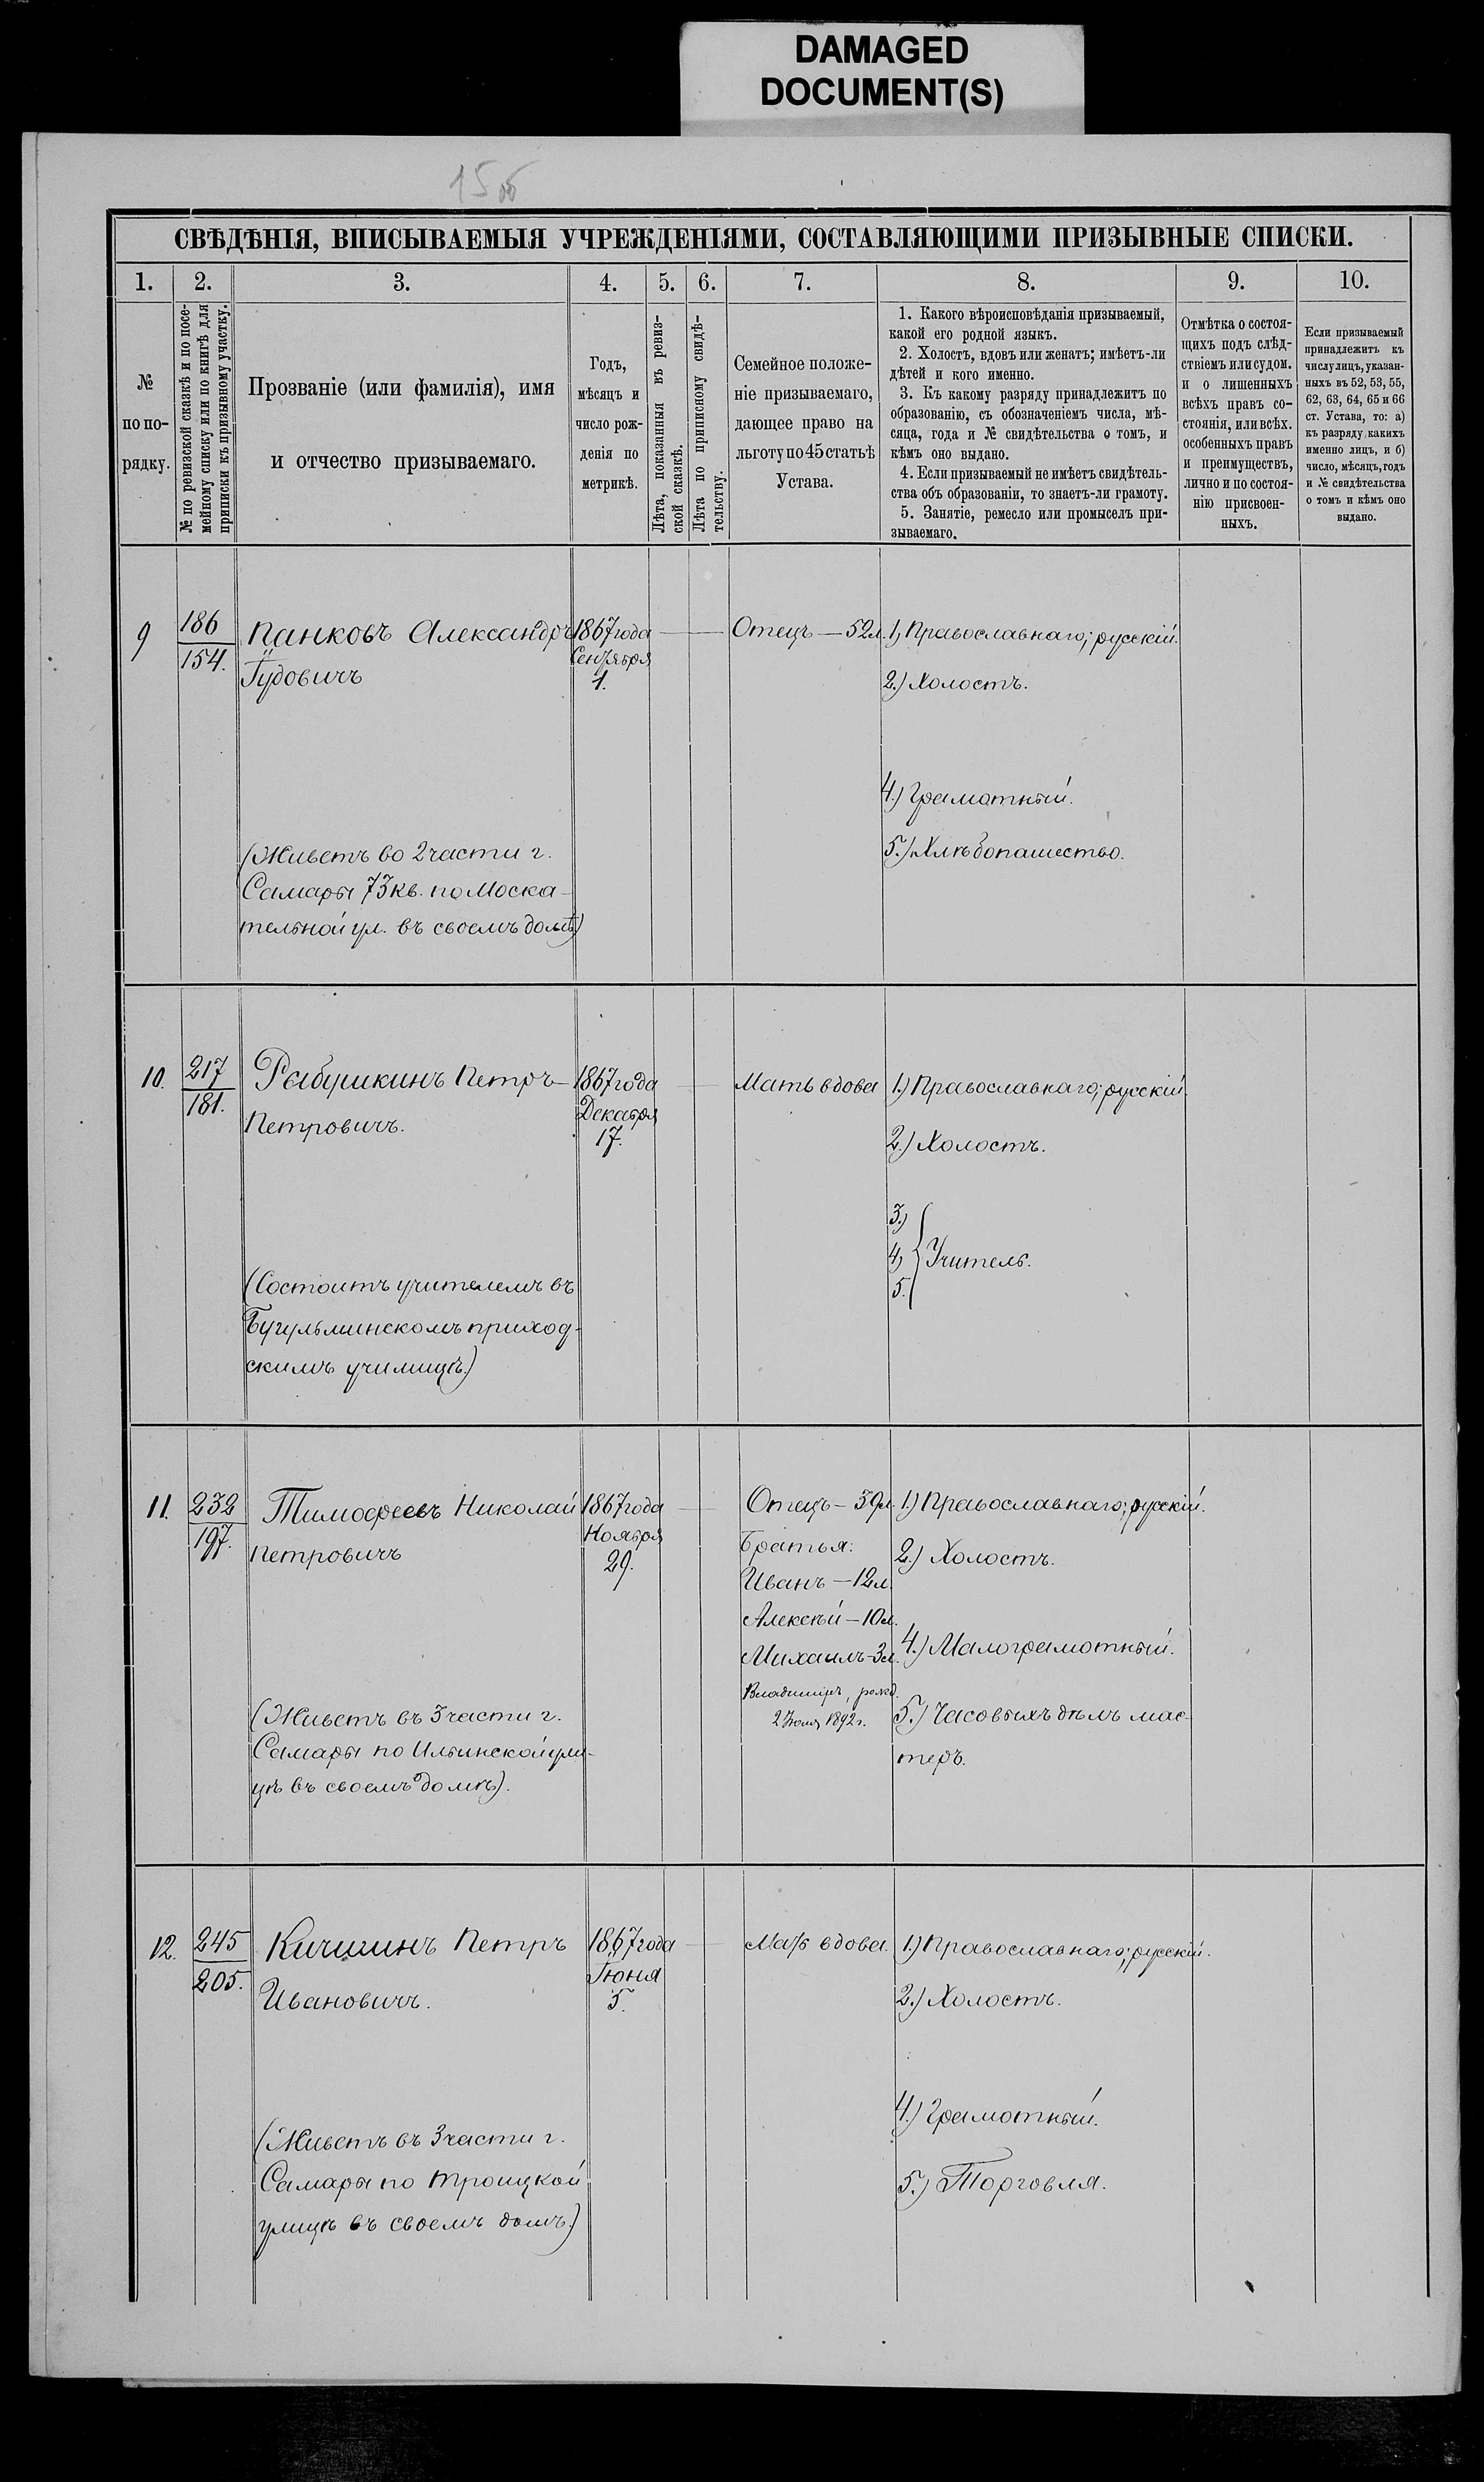 DAMAGED
DOCUMENT(S)
15 об
СВѢДѢНІЯ, ВПИСЫВАЕМЫЯ УЧРЕЖДЕНІЯМИ, СОСТАВЛЯЮЩИМИ ПРИЗЫВНЫЕ СПИСКИ.
1. 2. 3. 4. 5. 6. 7. 8. 9. 10.
№
по по-
рядку.
№ по ревизской сказкѣ и по посе-
мейному списку или по книгѣ для
приписки къ призывному участку.
Прозваніе (или фамилія), имя
и отчество призываемаго.
Годъ,
мѣсяцъ и
число рож-
денія по
метрикѣ.
Лѣта, показанныя въ ревиз-
ской сказкѣ.
Лѣта по приписному свидѣ-
тельству.
Семейное положе-
ніе призываемаго,
дающее право на
льготу по 45 статьѣ
Устава.
1. Какого вѣроисповѣданія призываемый,
какой его родной языкъ.
2. Холостъ, вдовъ или женатъ; имѣетъ-ли
дѣтей и кого именно.
3. Къ какому разряду принадлежитъ по
образованію, съ обозначеніемъ числа, мѣ-
сяца, года и № свидѣтельства о томъ, и
кѣмъ оно выдано.
4. Если призываемый не имѣетъ свидѣтель-
ства объ образованіи, то знаетъ-ли грамоту.
5. Занятіе, ремесло или промыселъ при-
зываемаго.
Отмѣтка о состоя-
щихъ подъ слѣд-
ствіемъ или судом.
и о лишенныхъ
всѣхъ правъ со-
стоянія, или всѣх.
особенныхъ правъ
и преимуществъ,
лично и по состоя-
нію присвоен-
ныхъ.
Если призываемый
принадлежитъ къ
числу лицъ, указан-
ныхъ въ 52, 53, 55,
62, 63, 64, 65 и 66
ст. Устава, то: а)
къ разряду какихъ
именно лицъ, и б)
число, мѣсяцъ, годъ
и № свидѣтельства
о томъ и кѣмъ оно
выдано.
9
186
154.
Панковъ Александръ
Іудовичъ
(Живетъ во 2 части г.
Самары 73 кв. по Моска-
тельной ул. въ своемъ домѣ)
1867 года
Сентября
1.
Отецъ — 52 л.
1) Православнаго; русскій.
2.) Холостъ.
4.) Грамотный.
5.) Хлѣбопашество.
10.
217
181.
Рябушкинъ Петръ
Петровичъ.
(Состоитъ учителемъ въ
Бугульминскомъ приход-
скимъ училищѣ.)
1867 года
Декабря
17.
Мать вдова
1.) Православнаго; русскій.
2.) Холостъ.
3.)
4) Учитель.
5.
11.
232
197.
Тимофеевъ Николай
Петровичъ
(Живетъ въ 3 части г.
Самары по Ильинской ули-
цѣ въ своемъ домѣ).
1867 года
Ноября
29.
Отецъ —
Братья:
Иванъ — 12 л.
Алексѣй — 10 л.
Михаилъ — 3 л.
Владиміръ, рожд.
2 1892 г.
1.) Православнаго; русскій.
2.) Холостъ.
4.) Малограмотный.
5.) Часовыхъ дѣлъ мас-
теръ.
12.
245
205.
Кичигинъ Петръ
Ивановичъ.
(Живетъ въ 3 части г.
Самары по Троицкой
улицѣ въ своемъ домѣ.)
1867 года
Іюня
5.
Мать вдова.
1.) Православнаго; русскій.
2.) Холостъ.
4.) Грамотный.
5.) Торговля.